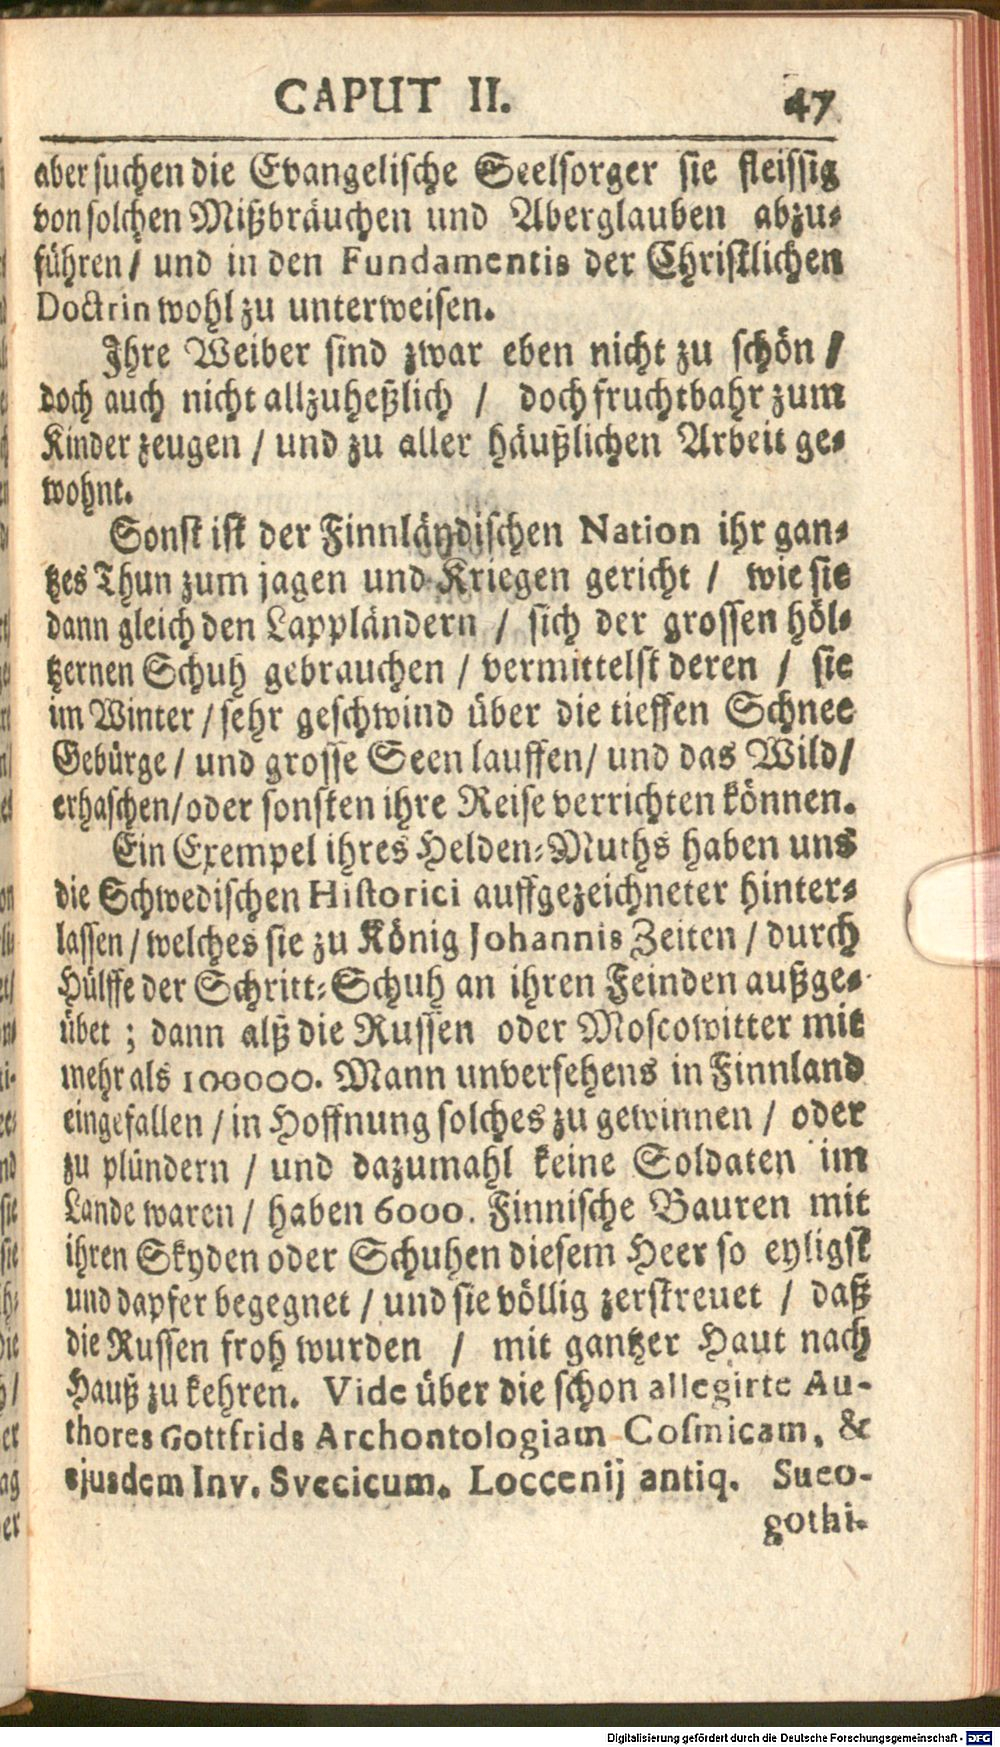 CAPUT II. 47
aber suchen die Evangelische Seelsorger sie fleissig
von solchen Mißbräuchen und Aberglauben abzu-
führen / und in den Fundamentis der Christlichen
Doctrin wohl zu unterweisen.
Ihre Weiber sind zwar eben nicht zu schön /
doch auch nicht allzuheßlich / doch fruchtbahr zum
Kinder zeugen / und zu aller häußlichen Arbeit ge-
wohnt.
Sonst ist der Finnländischen Nation ihr gan-
tzes Thun zum jagen und Kriegen gericht / wie sie
dann gleich den Lappländern / sich der grossen höl-
tzernen Schuh gebrauchen / vermittelst deren / sie
im Winter / sehr geschwind über die tieffen Schnee
Gebürge / und grosse Seen lauffen / und das Wild /
erhaschen / oder sonsten ihre Reise verrichten können.
Ein Exempel ihres Helden-Muths haben uns
die Schwedischen Historici auffgezeichneter hinter-
lassen / welches sie zu König Johannis Zeiten / durch
Hülffe der Schritt-Schuh an ihren Feinden außge-
übet ; dann alß die Russen oder Moscowitter mit
mehr als 100000. Mann unversehens in Finnland
eingefallen / in Hoffnung solches zu gewinnen / oder
zu plündern / und dazumahl keine Soldaten im
Lande waren / haben 6000. Finnische Bauren mit
ihren Skyden oder Schuhen diesem Heer so eyligst
und dapfer begegnet / und sie völlig zerstreuet / daß
die Russen froh wurden / mit gantzer Haut nach
Hauß zu kehren. Vide über die schon allegirte Au-
thores Gottfrids Archontologiam Cosmicam, &
ejusdem Inv. Svecicum. Loccenij antiq. Sueo-
gothi-
Digitalisierung gefördert durch die Deutsche Forschungsgemeinschaft - DFG